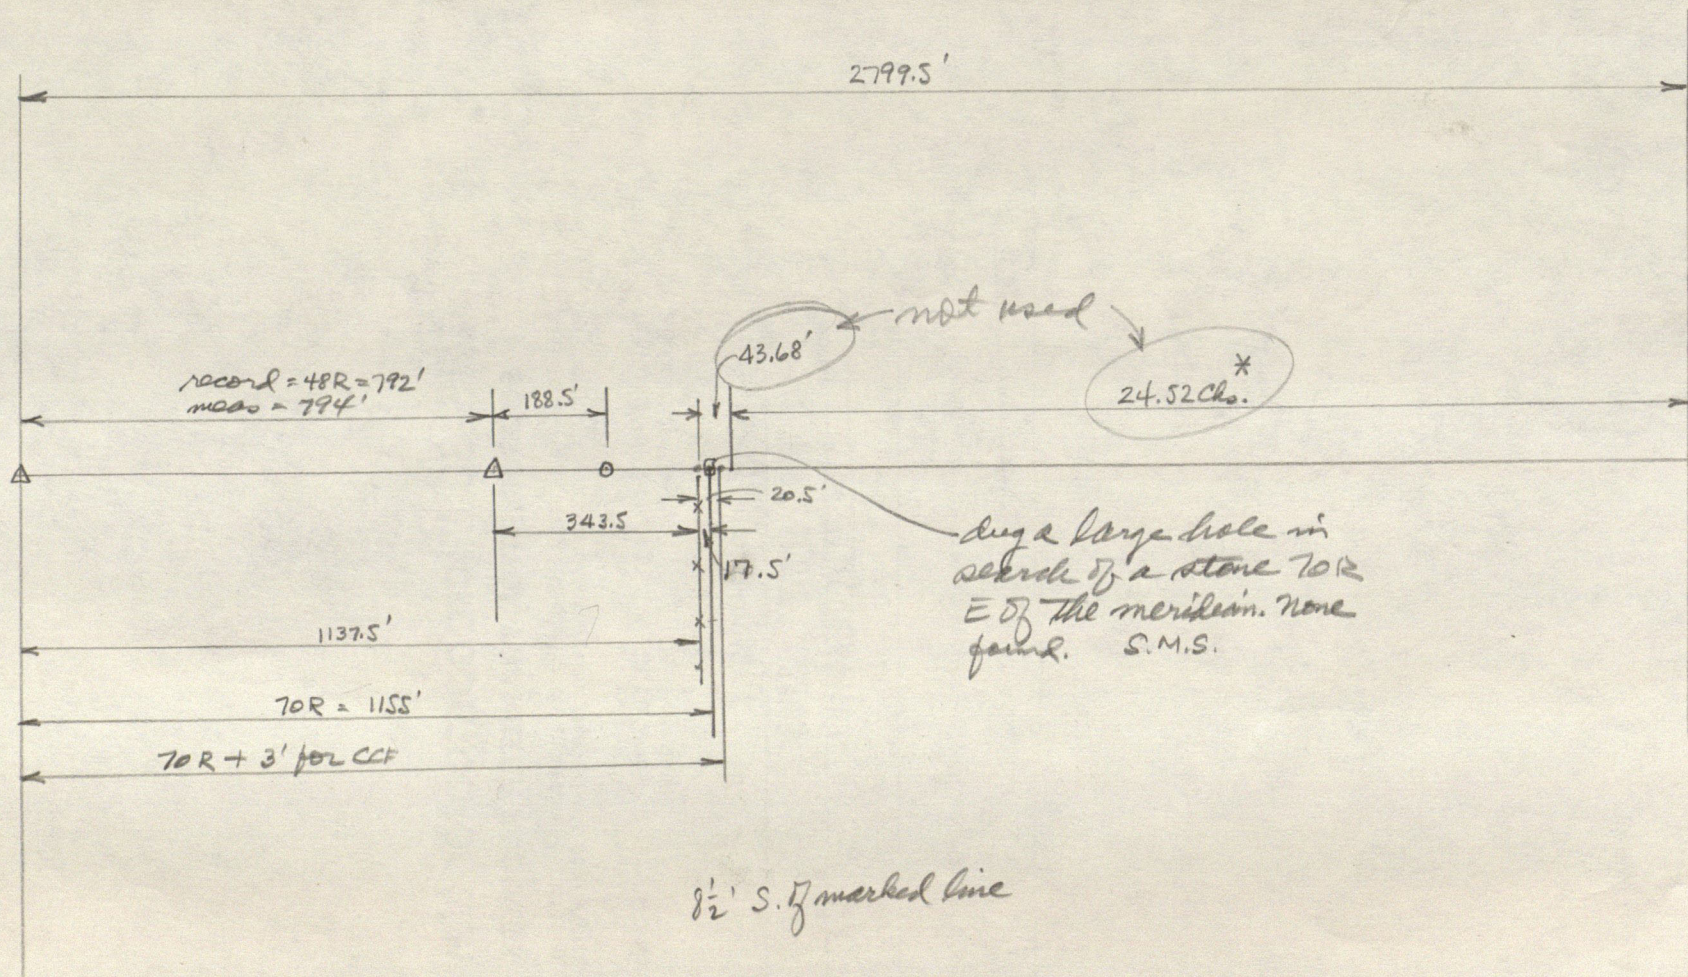 2799.5'
not used
43.68'
*
24.52 Chs.
record = 48R = 792'
meas = 794'
188.5'
20.5'
343.5
17.5'
dug a large hole in
search of a stone 70R
E of the meridian. None
found. S.M.S.
1137.5'
70R = 1155'
70R + 3' for CCF
8½' S. of marked line